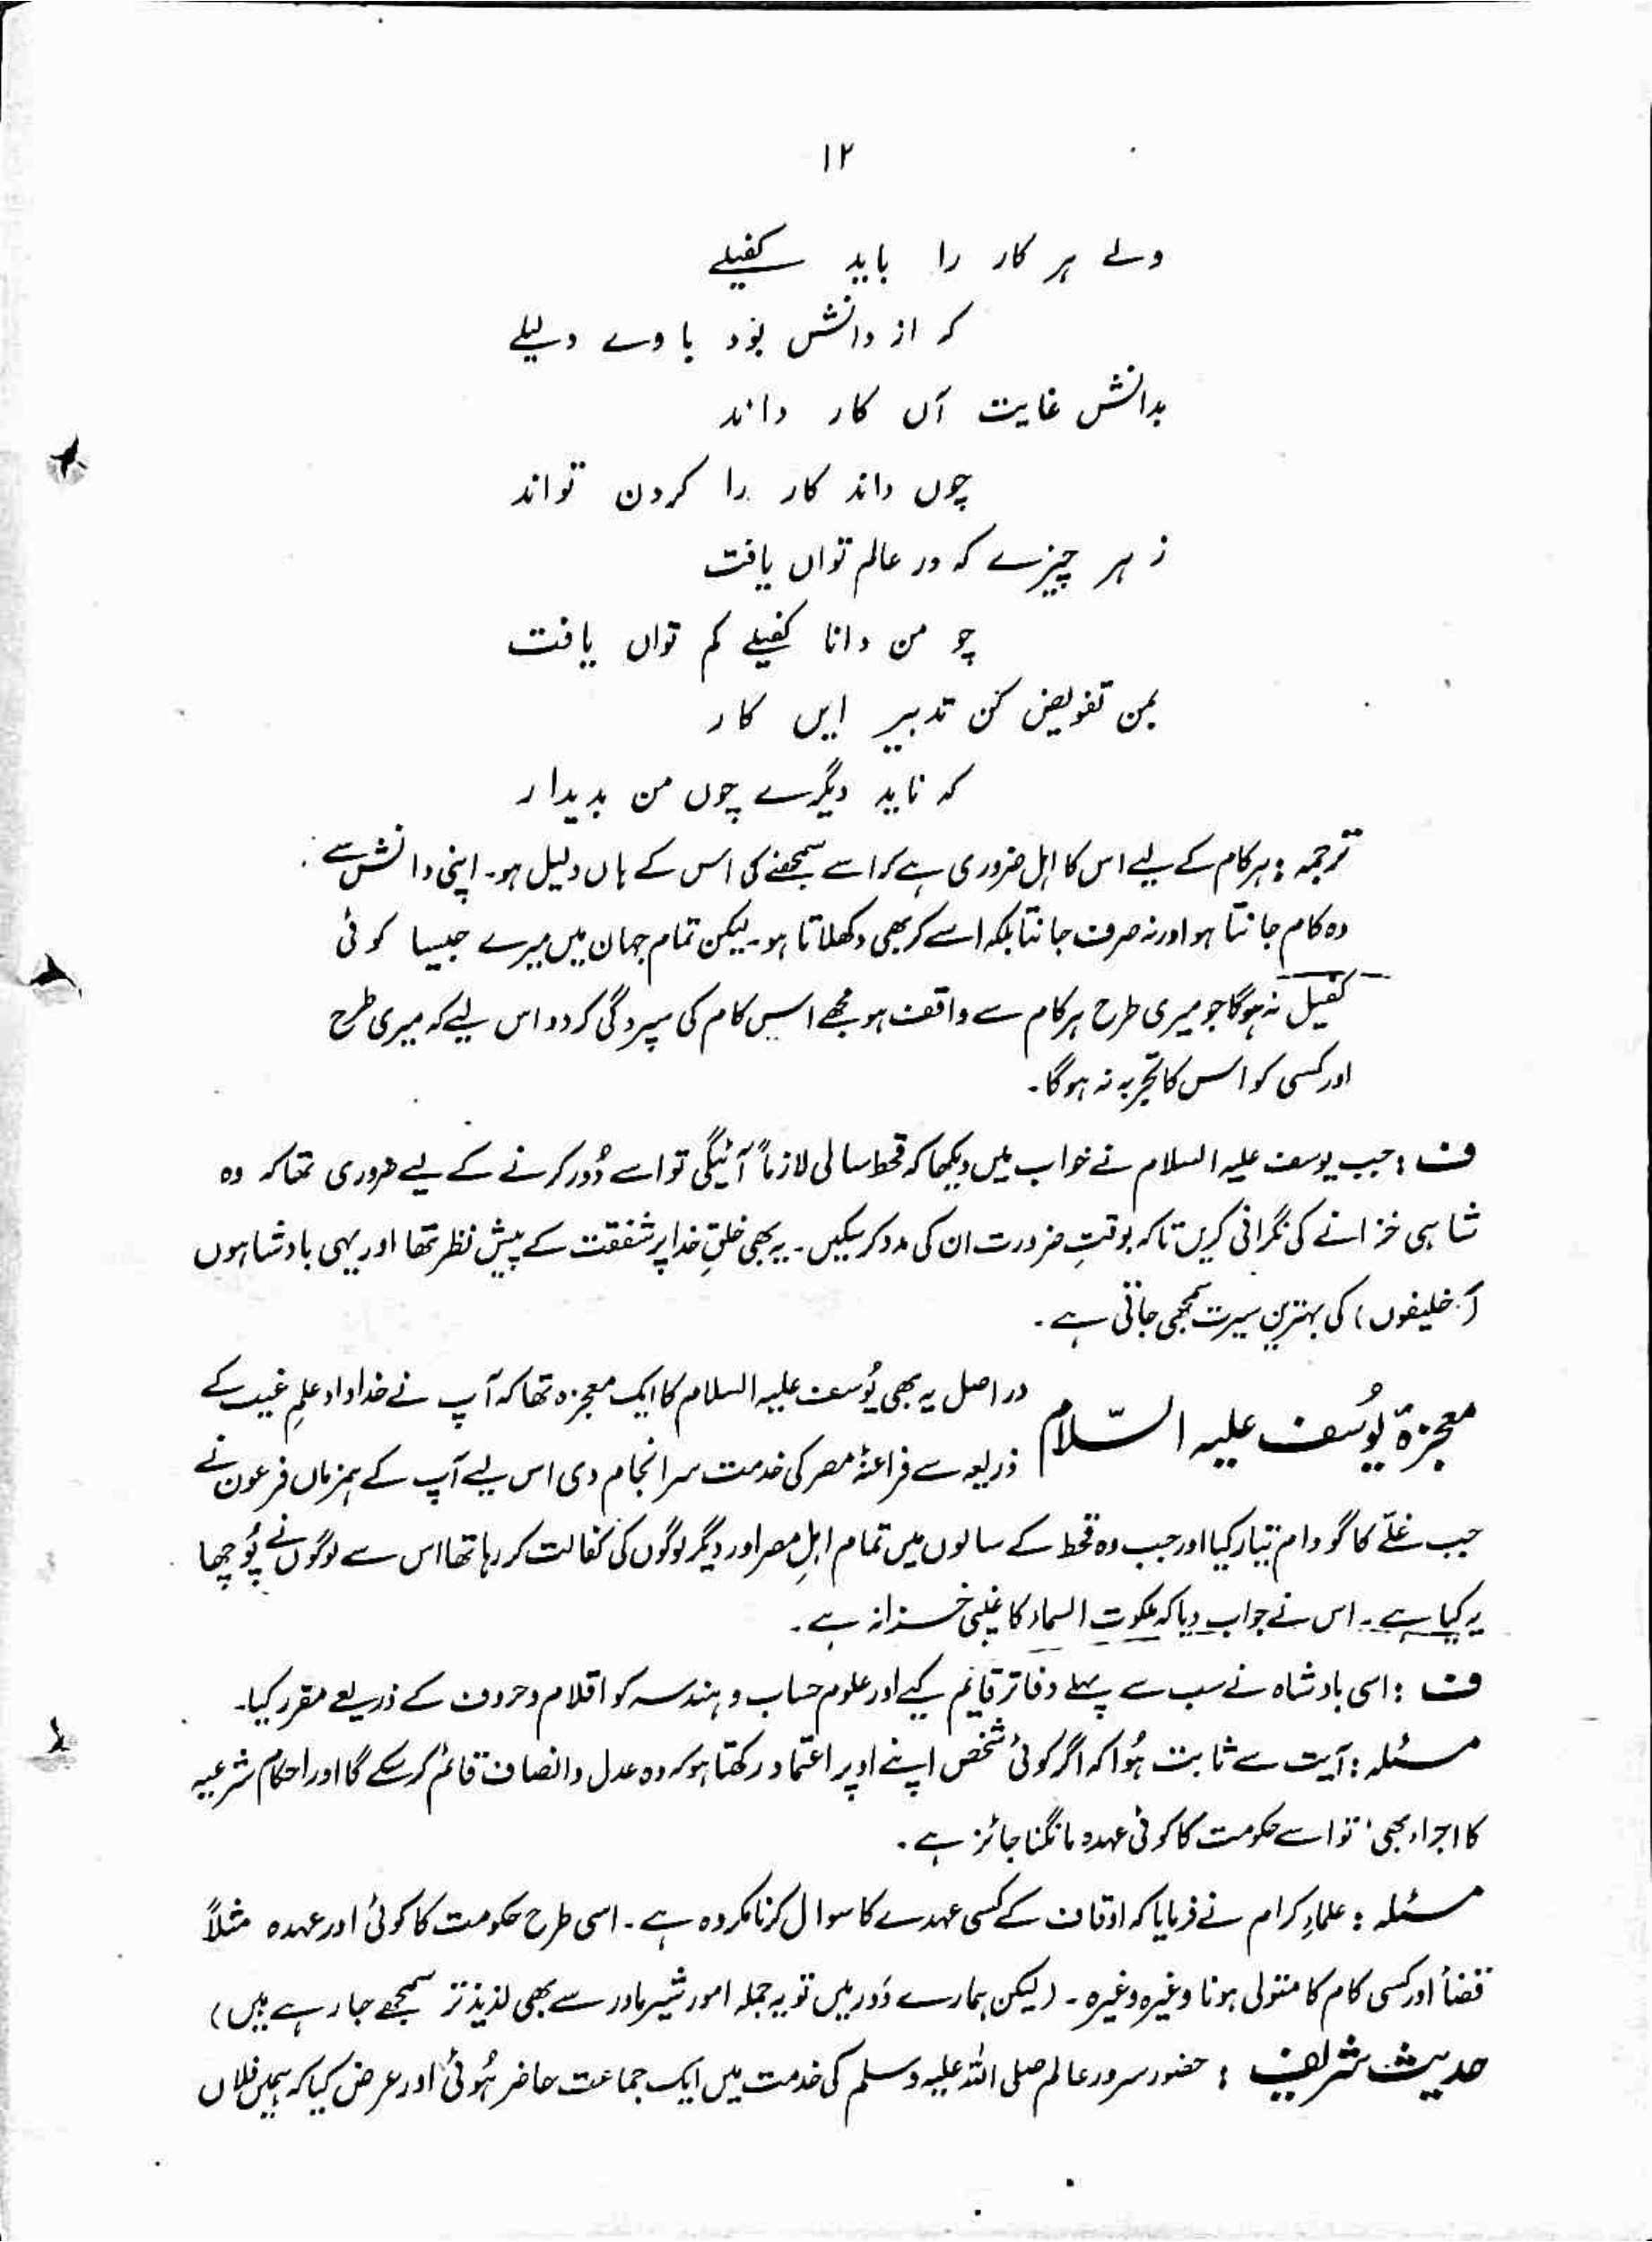 ۱۲
ولے ہر کار را باید کفیلے
کہ از دانش بود با وے دلیلے
بدانش غایت آں کار داند
چوں داند کار را کردن تواند
ز ہر چیزے کہ در عالم تواں یافت
چو من دانا کفیلے کم تواں یافت
بمن تفویض کن تدبیر ایں کار
کہ ناید دیگرے چوں من پدیدار
ترجمہ : ہر کام کے لیے اس کا اہل ضروری ہے کہ اسے سمجھنے کی اس کے ہاں دلیل ہو۔ اپنی دانش سے
وہ کام جانتا ہو اور نہ صرف جانتا بلکہ اسے کر بھی دکھلاتا ہو۔ لیکن تمام جہان میں میرے جیسا کوئی
کفیل نہ ہوگا جو میری طرح ہر کام سے واقف ہو مجھے اس کام کی سپردگی کر دو اس لیے کہ میری طرح
اور کسی کو اس کا تجربہ نہ ہوگا۔
ف : جب یوسف علیہ السلام نے خواب میں دیکھا کہ قحط سالی لازماً آئیگی تو اسے دُور کرنے کے لیے ضروری تھا کہ وہ
شاہی خزانے کی نگرانی کریں تاکہ بوقتِ ضرورت ان کی مدد کر سکیں۔ یہ بھی خلقِ خدا پر شفقت کے پیشِ نظر تھا اور یہی بادشاہوں
خلیفوں) کی بہترین سیرت سمجھی جاتی ہے۔
معجزۂ یُوسف علیہ السّلام دراصل یہ بھی یُوسف علیہ السلام کا ایک معجزہ تھا کہ آپ نے خداداد علمِ غیب کے
ذریعہ سے فراعنۂ مصر کی خدمت سرانجام دی اس لیے آپ کے ہمزماں فرعون نے
جب غلّے کا گودام تیار کیا اور جب وہ قحط کے سالوں میں تمام اہلِ مصر اور دیگر لوگوں کی کفالت کر رہا تھا اس سے لوگوں نے پُوچھا
یہ کیا ہے۔ اس نے جواب دیا کہ ملکوت السماء کا غیبی خزانہ ہے۔
ف : اسی بادشاہ نے سب سے پہلے دفاتر قائم کیے اور علوم حساب و ہندسہ کو اقلام و حروف کے ذریعے مقرر کیا۔
مسئلہ : آیت سے ثابت ہُوا کہ اگر کوئی شخص اپنے اوپر اعتماد رکھتا ہو کہ وہ عدل و انصاف قائم کر سکے گا اور احکام شرعیہ
کا اجراء بھی، تو اسے حکومت کا کوئی عہدہ مانگنا جائز ہے۔
مسئلہ : علماءِ کرام نے فرمایا کہ اوقاف کے کسی عہدے کا سوال کرنا مکروہ ہے۔ اسی طرح حکومت کا کوئی اور عہدہ مثلاً
قضأ اور کسی کام کا متولی ہونا وغیرہ وغیرہ۔ (لیکن ہمارے دَور میں تو یہ جملہ امور شیرِ مادر سے بھی لذیذ تر سمجھے جا رہے ہیں)
حدیث شریف : حضور سرور عالم صلی اللہ علیہ وسلم کی خدمت میں ایک جماعت حاضر ہُوئی اور عرض کیا کہ ہمیں فلاں